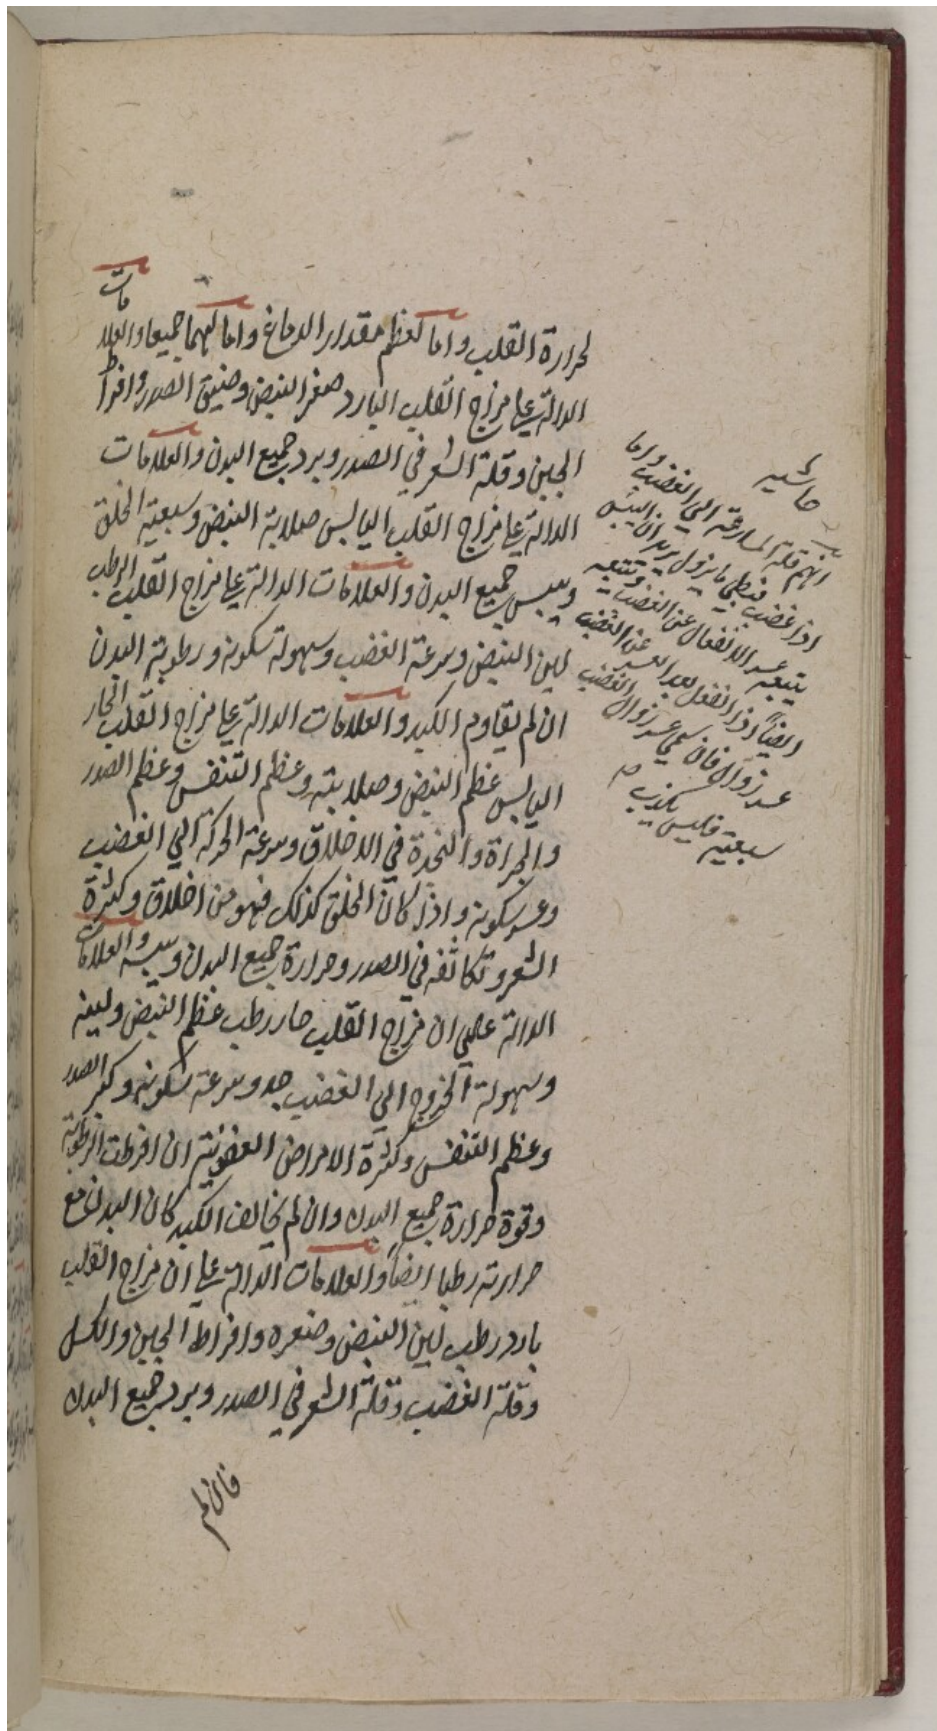 لحرارة القلب واما لعظم مقدار الدماغ واما لهما جميعا والعلامات
الدالة على مزاج القلب البارد صغر النبض وضيق الصدر وافراط
الجبن وقلة الشعر في الصدر وبرد جميع البدن والعلامات
الدالة على مزاج القلب اليابس صلابة النبض وسبعية الخلق
ويبس جميع البدن والعلامات الدالة على مزاج القلب الرطب
لين النبض وسرعة الغضب وسهولة سكونه ورطوبة البدن
ان لم يقاوم الكبد والعلامات الدالة على مزاج القلب الحار
اليابس عظم النبض وصلابته وعظم التنفس وعظم الصدر
والجراة والنجدة في الاخلاق وسرعة الحركة الي الغضب
وعسر سكونه واذا كان الخلق كذلك فهو من اخلاق وكثرة
الشعر وتكاثفه في الصدر وحرارة جميع البدن ويبسه والعلامات
الدالة علي ان مزاج القلب حار رطب عظم النبض ولينه
وسهولة الخروج الي الغضب جد وسرعة سكونه وكبر الصدر
وعظم التنفس وكثرة الامراض العفونية ان افرطت الرطوبة
وقوة حرارة جميع البدن وان لم يخالف الكبد كان البدن مع
حرارته رطبا ايضا والعلامات الدالة على ان مزاج القلب
بارد رطب لين النبض وصغره وافراط الجبن والكسل
وقلة الغضب وقلة الشعر في الصدر وبرد جميع البدن
فان لم
حاشية
قلة المسارعة الي الغضب واما
اذا غضب فبطي ما يزول يريد ان اليبس
يتبعه عسر الانفعال عن الغضب ويتبعه
ايضا اذا انفعل بعد العسر عن الغضب
عسر زواله فان سمي عسر زوال الغضب
سبعية فليس يكذب